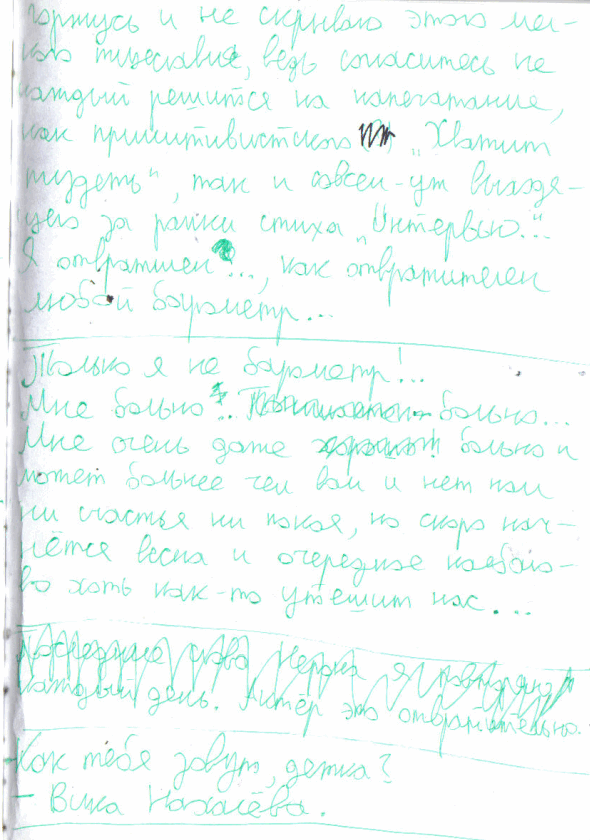 горжусь и не скрываю этого мел-
кого тщеславия, ведь согласитесь не
каждый решится на напечатание,
как примитивистского „Хватит
пиздеть“, так и совсем-ут выходя-
щего за рамки стиха „Интервью...“
Я отвратилен..., как отвратителен
любой барометр...
Только я не барометр!...
Мне больно... больно...
Мне очень даже больно и
может больнее чем вам и нет нам
ни счастья ни покоя, но скоро нач-
нётся весна и очередное
во хоть как-то утешит нас...
Последние слова Нерона я повторяю
каждый день. Актёр это отвратительно.
Как тебя зовут, детка?
- Вика Нахалёва.